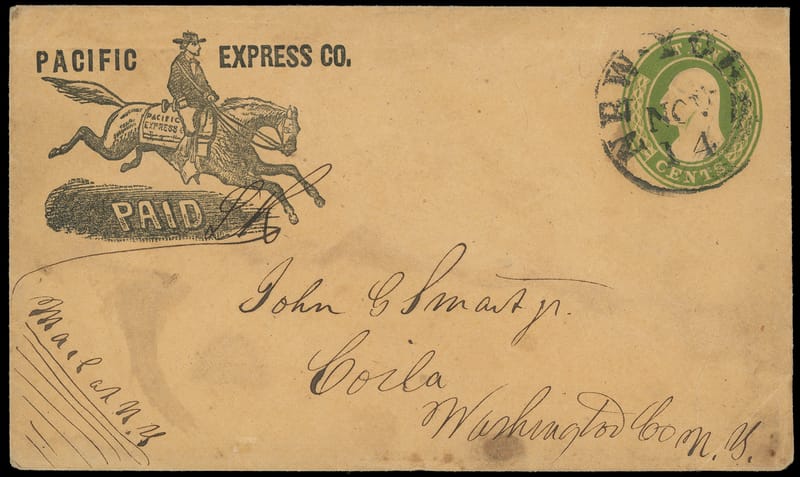 PACIFIC EXPRESS CO.
PACIFIC
EXPRESS
PAID
NEW-YORK
NOV
14
TEN
CENTS
John G Smart jr.
Coila
Washington Co N. Y.
Mail at N. Y